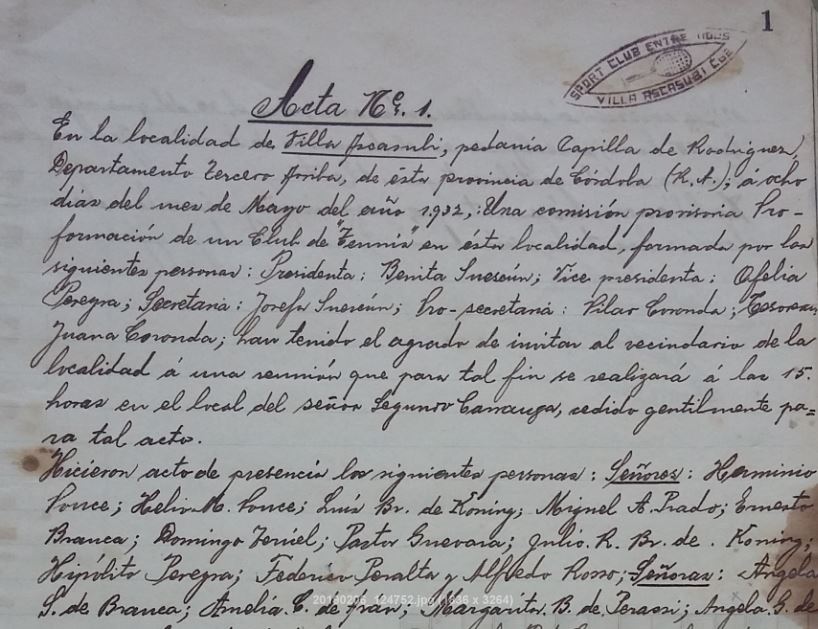 1
SPORT CLUB ENTRE
VILLA ASCASUBI CBA
Acta Nº. 1.
En la localidad de Villa Ascasubi, pedanía Capilla de Rodriguez,
Departamento Tercero Arriba, de ésta provincia de Córdoba (R.A.); á ocho
días del mes de Mayo del año 1.932,: Una comisión provisoria Pro-
formación de un Club de "Tennis" en ésta localidad, formada por las
siguientes personas: Presidenta: Benita Suescún; Vice presidenta: Ofelia
Pereyra; Secretaria: Josefa Suescún; Pro-secretaria: Pilar Coronda; Tesorera
Juana Coronda; han tenido el agrado de invitar al vecindario de la
localidad á una reunión que para tal fin se realizará á las 15.
horas en el local del señor Segundo, cedido gentilmente pa=
ra tal acto.
Hicieron acto de presencia los siguientes personas: Señores: Herminio
Ponce; Helio M. Ponce; Luís Br. de Koning; Miguel A. Prado; Ernesto
Branca; Domingo; Pastor Guevara; Julio. R. Br. de. Koning;
Hipólito Pereyra; Federico Peralta y Alfredo Rosso; Señoras: Angela
S. de Branca; Amelia. C. de; Margarita. B. de. Perassi; Angela. G. de
20180206_124752.jpg (1836 x 3264)